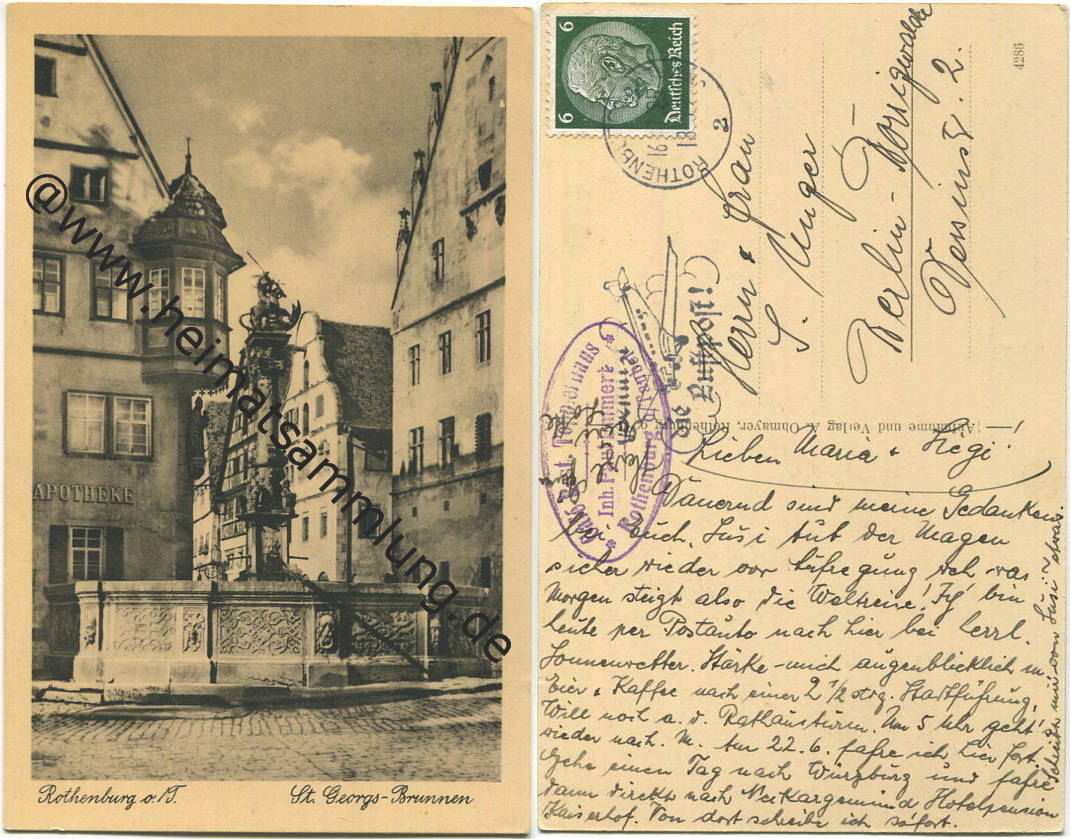 APOTHEKE
Rothenburg o./T. St. Georgs-Brunnen
@www.heimatsammlung.de
6 6
Deutsches Reich
ROTHENBURG
16
18
2
4286
Luftpost!
Herrn & Frau
S. Unger
Berlin-Borsigwalde
Aufnahme und Verlag A. Ohmayer, Rothenburg
Inh. Paul
Rothenburg
Lieben Maria &
Dauernd sind meine Gedanken
bei Euch, Susi tut der Magen
sicher wieder vor Aufregung weh
Morgen steigt also die Weltreise! Ich bin
heute per Postauto nach hier bei herrl.
Sonnenwetter. Stärke mich augenblicklich m.
Eier & Kaffee nach einer 2 1/2 stdg. Stadtführung,
Will noch a. d. Rathausturm. Um 5 Uhr geht's
wieder nach M. Am 22.6. fahre ich hier fort.
Gehe einen Tag nach Würzburg und fahre
dann direkt nach Neckargemünd Hotelpension
Kaiserhof. Von dort schreibe ich sofort.
Schreibt mir von Susi etwas.